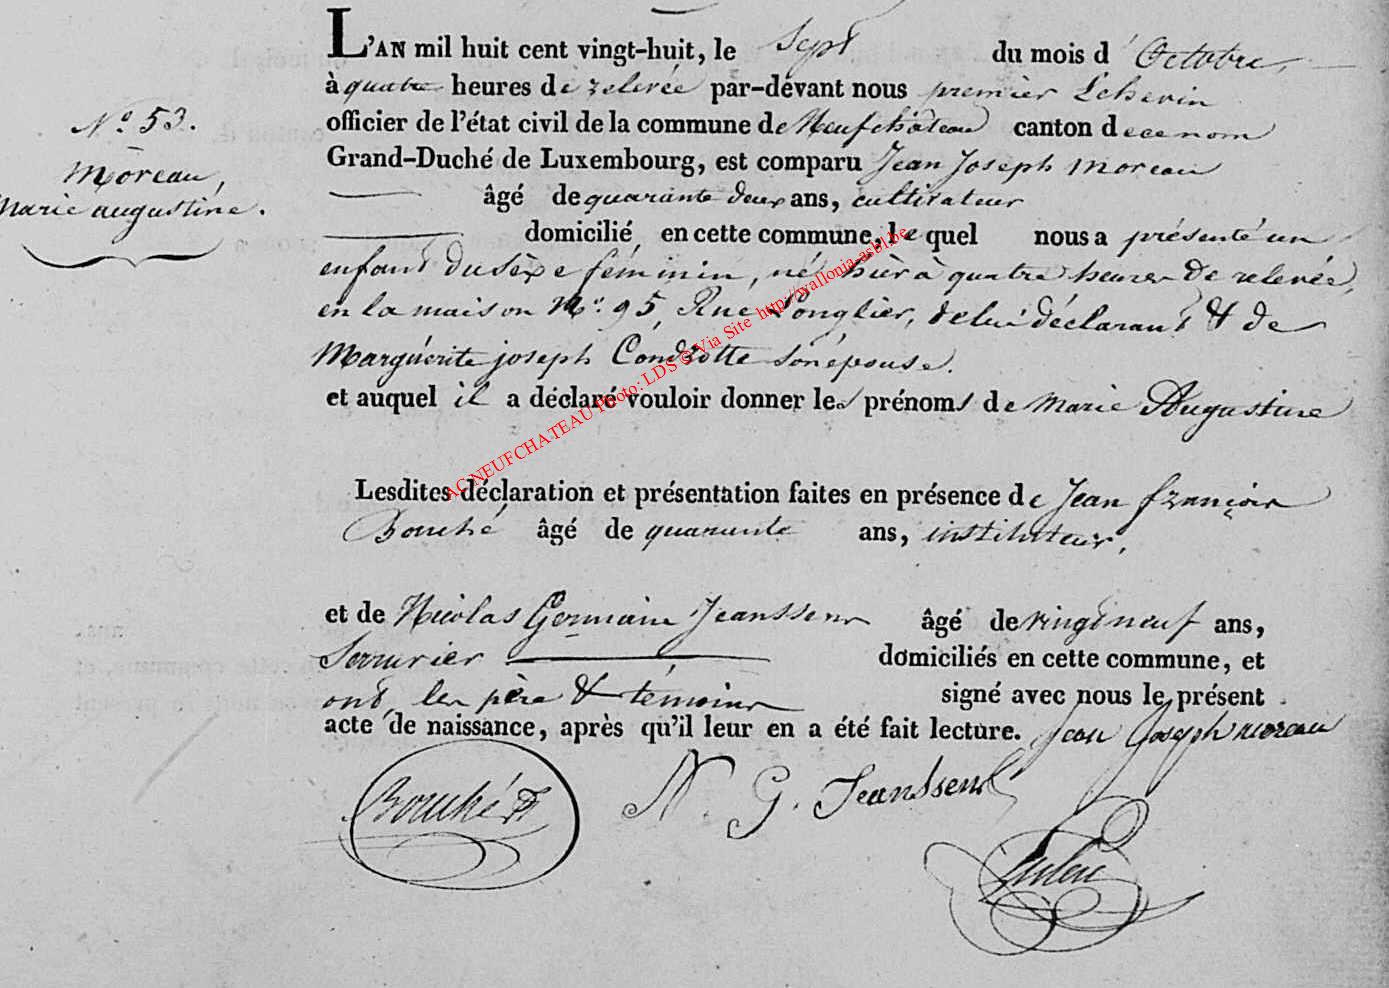 L'AN mil huit cent vingt-huit, le Sept du mois d'Octobre,
à quatre heures de relevée par-devant nous premier Echevin
officier de l'état civil de la commune de Neufchâteau canton de ce nom
Grand-Duché de Luxembourg, est comparu Jean Joseph Moreau
âgé de quarante deux ans, cultivateur
domicilié en cette commune, le quel nous a présenté un
enfant du sèxe féminin, né hièr à quatre heures de relevée,
en la maison N.o 95, Rue Longlier, de lui déclarant & de
Marguérite joseph Condrotte son épouse.
et auquel il a déclaré vouloir donner les prénoms de Marie Augustine
N.o 53.
Moreau,
Marie augustine.
Lesdites déclaration et présentation faites en présence de Jean françois
Bouché âgé de quarante ans, instituteur,
et de Nicolas Germain Jeanssens âgé de vingt neuf ans,
Serrurier domiciliés en cette commune, et
ont, les père & témoins signé avec nous le présent
acte de naissance, après qu'il leur en a été fait lecture. Jean Joseph moreau
Bouché N. G. Jeanssens
AC NEUFCHATEAU Photo: LDS © Via Site http://wallonia-asbl.be